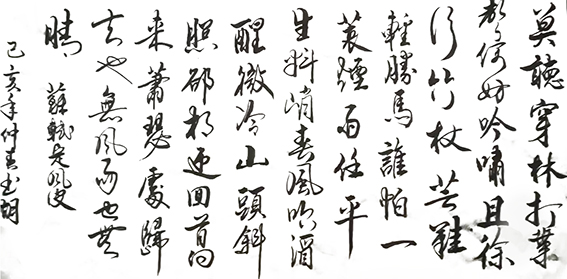 莫聽穿林打葉
聲何妨吟嘯且徐
行竹杖芒鞋
輕勝馬誰怕一
蓑煙雨任平
生料峭春風吹酒
醒微冷山頭斜
照卻相迎回首向
来蕭瑟處歸
去也無風雨也無
晴 蘇軾定風波
己亥年仲春书胡